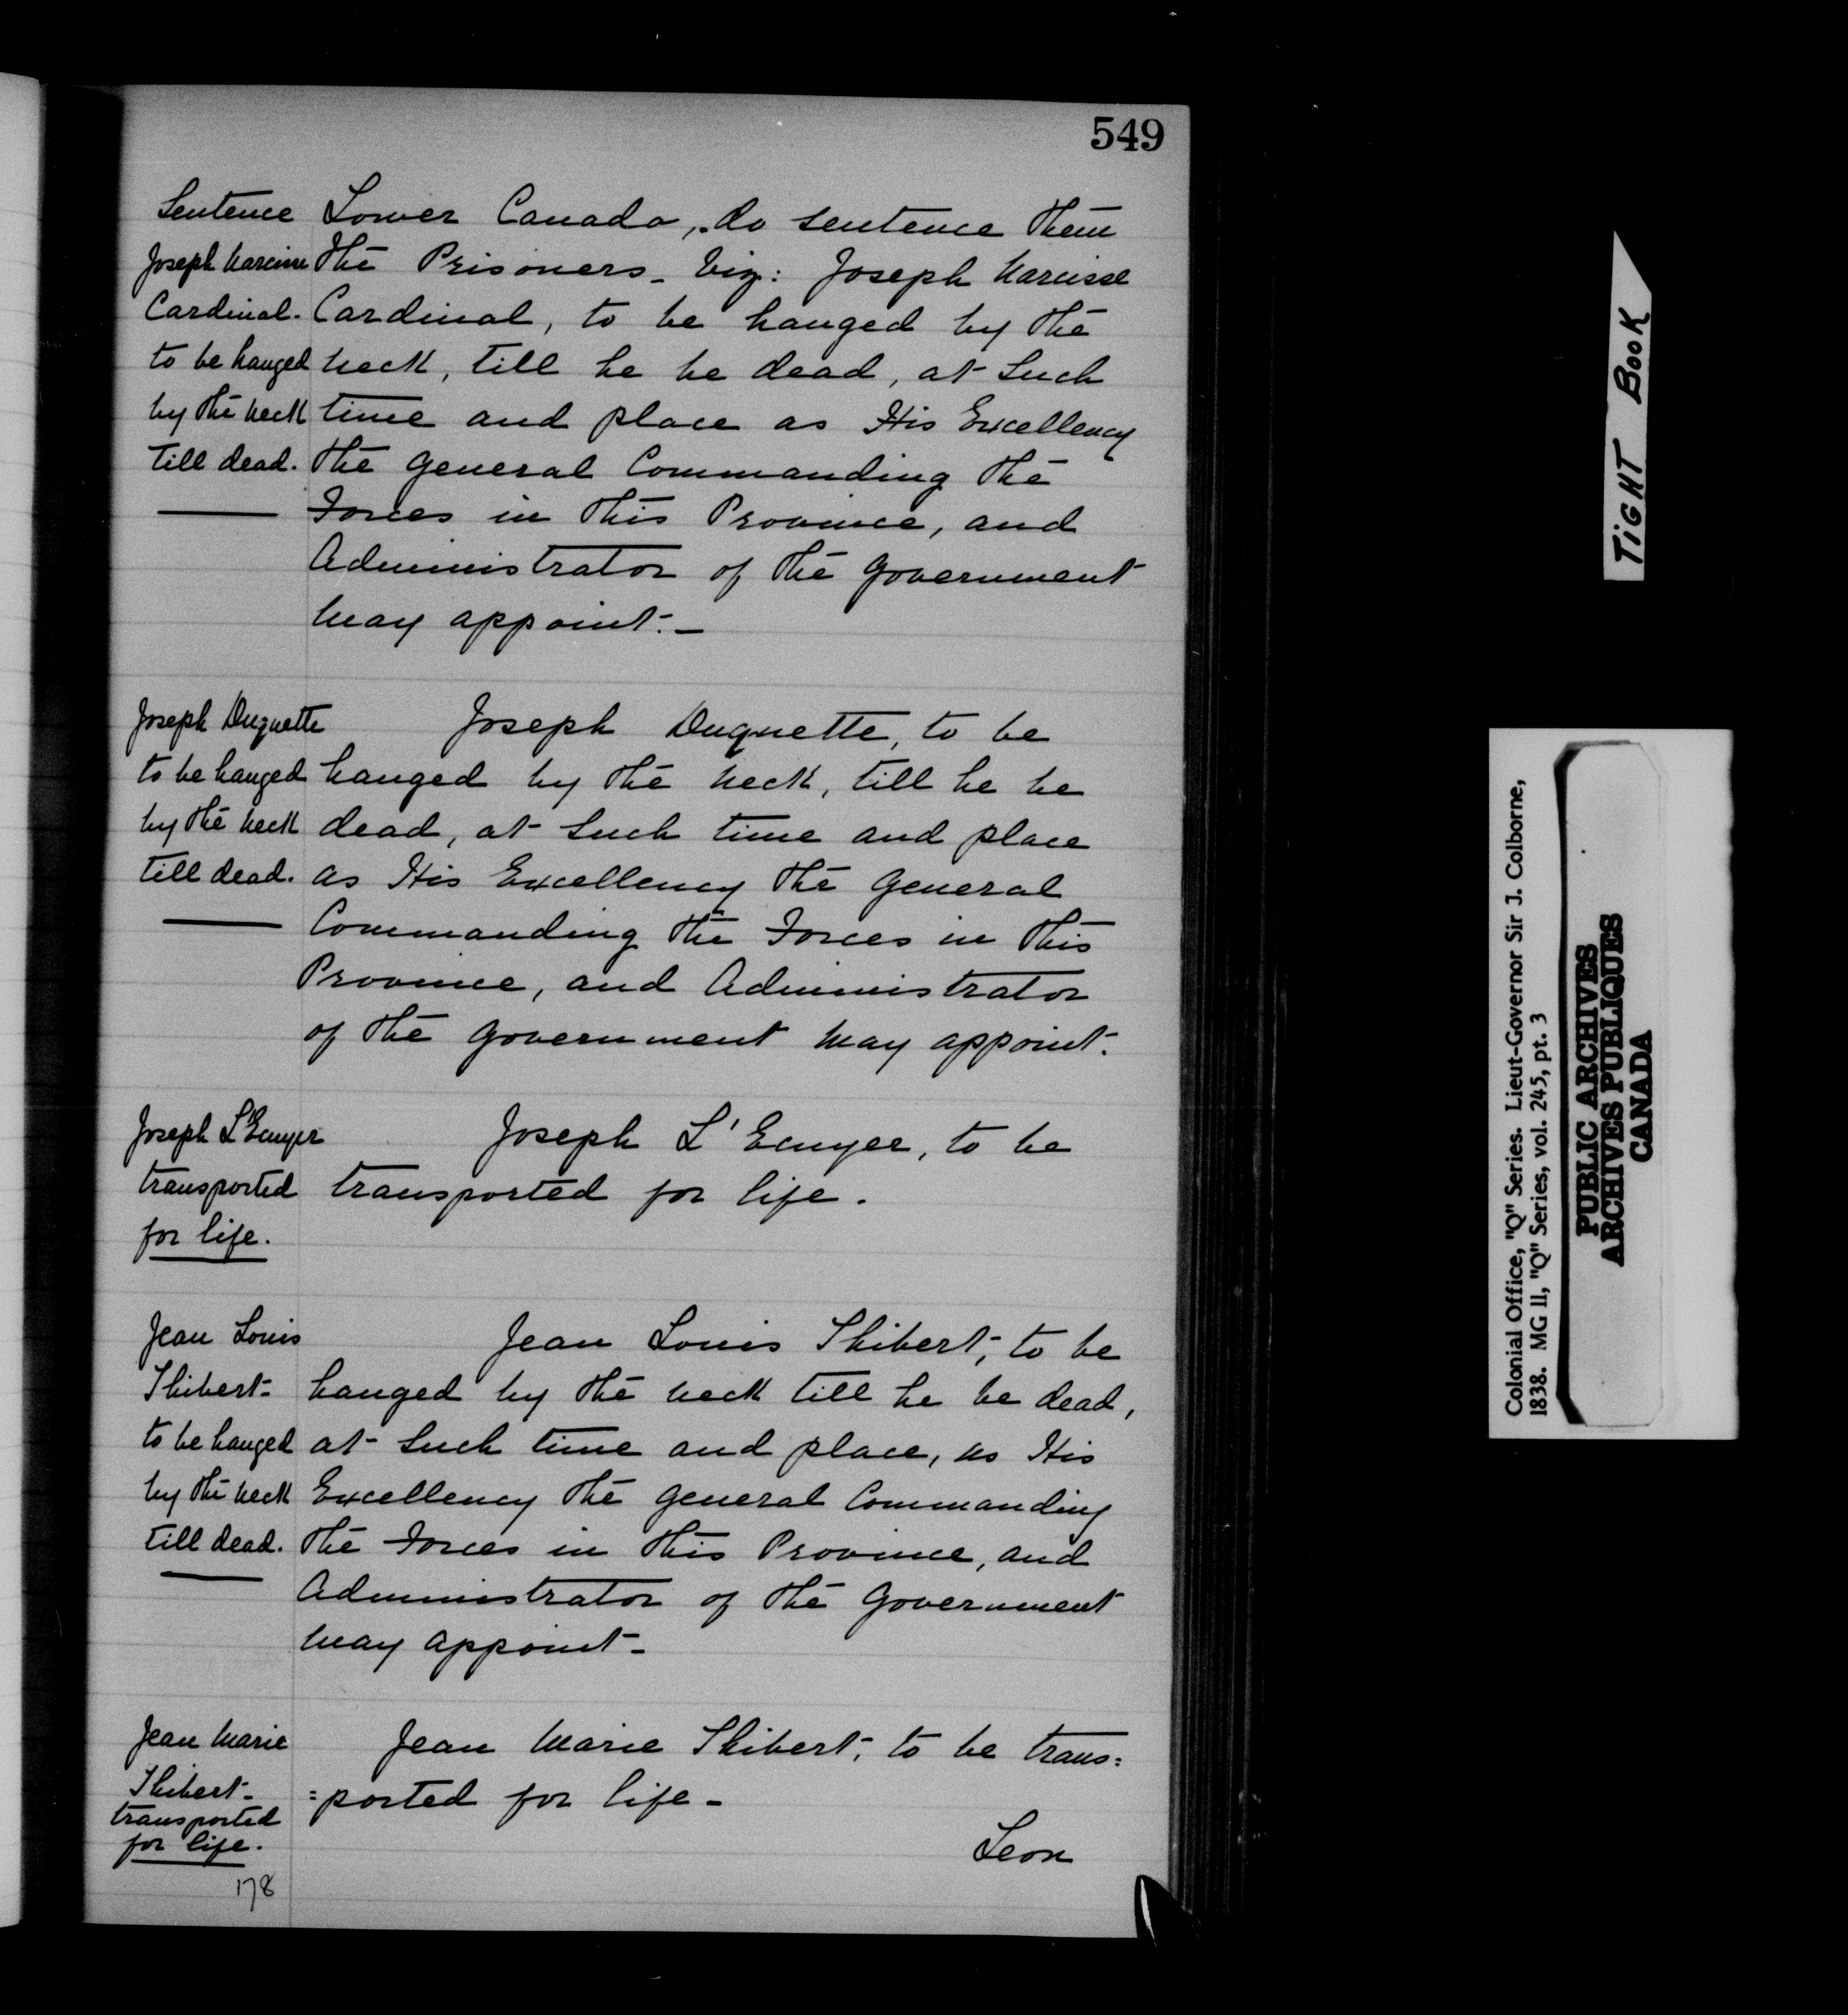 549
Sentence
Joseph Narcisse
Cardinal.
to be hanged
by the neck
till dead.
Lower Canada, do sentence them
the Prisoners - viz: Joseph Narcisse
Cardinal, to be hanged by the
neck, till he be dead, at such
time and place as His Excellency
the General Commanding the
Forces in this Province, and
Administrator of the Government
may appoint. -
Joseph Duquette
to be hanged
by the neck
till dead.
Joseph Duquette, to be
hanged by the neck, till he be
dead, at such time and place
as His Excellency the General
Commanding the Forces in this
Province, and Administrator
of the Government may appoint.
Joseph L'Ecuyer
transported
for life.
Joseph L'Ecuyer, to be
transported for life.
Jean Louis
Thibert -
to be hanged
by the neck
till dead.
Jean Louis Thibert, to be
hanged by the neck till he be dead,
at such time and place, as His
Excellency the General Commanding
the Forces in this Province, and
Administrator of the Government
may appoint -
Jean Marie
Thibert -
transported
for life.
178
Jean Marie Thibert, to be trans=
=ported for life -
Leon
TIGHT BOOK
Colonial Office, "Q" Series. Lieut-Governor Sir J. Colborne,
1838. MG 11, "Q" Series, vol. 245, pt. 3
PUBLIC ARCHIVES
ARCHIVES PUBLIQUES
CANADA